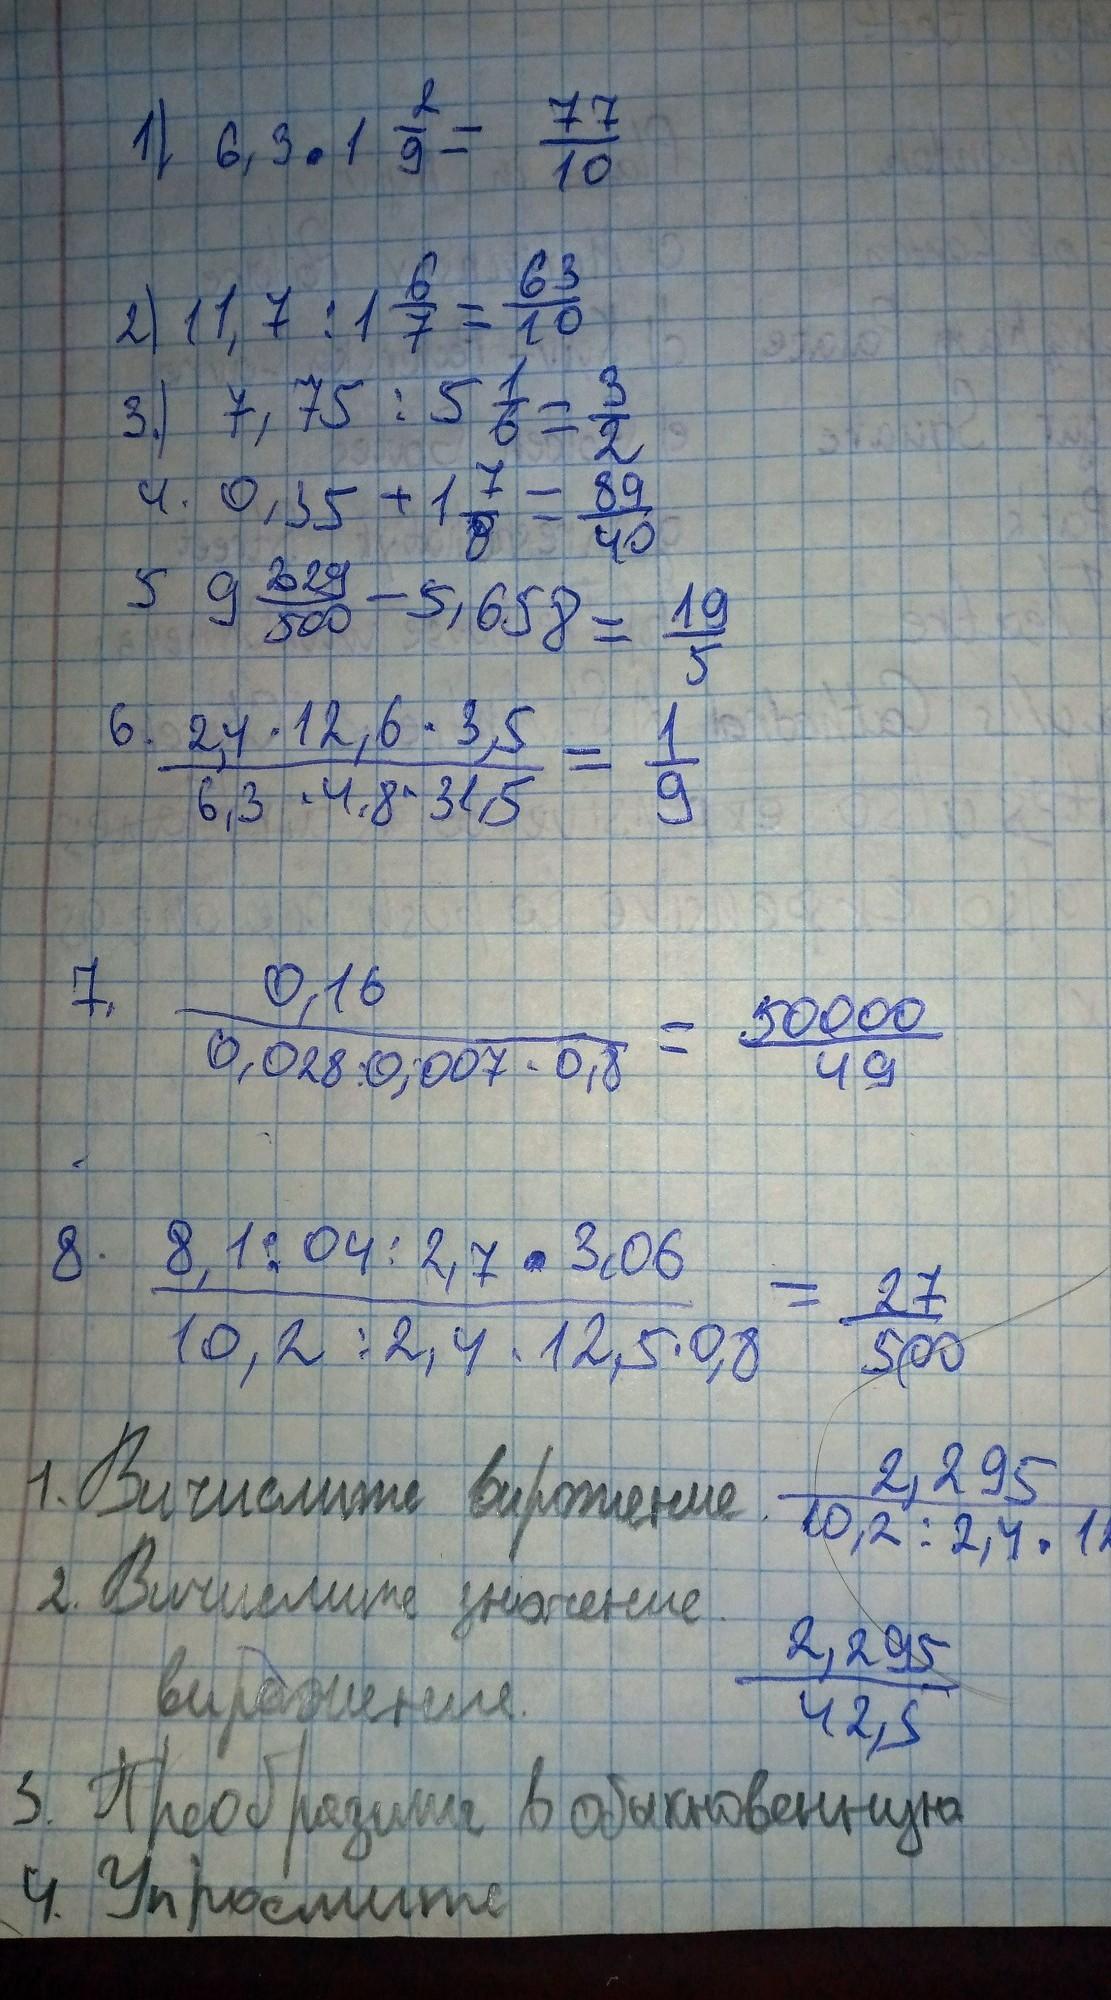 1) 6,3 • 1 2/9 = 77/10
2) 11,7 : 1 6/7 = 63/10
3.) 7,75 : 5 1/6 = 3/2
4. 0,35 + 1 7/8 = 89/40
5 9 229/500 - 5,658 = 19/5
6. 2,4 · 12,6 · 3,5 / 6,3 · 4,8 · 31,5 = 1/9
7. 0,16 / 0,028 · 0,007 · 0,8 = 50000/49
8. 8,1 : 04 : 2,7 • 3,06 / 10,2 : 2,4 · 12,5 · 0,8 = 27/500
1. Вичислите виржение. 2,295 / 10,2 : 2,4 • 12
2. Вичислите значение.
виражение. 2,295 / 42,5
3. Преобразите в обыкновенную
4. Упростите